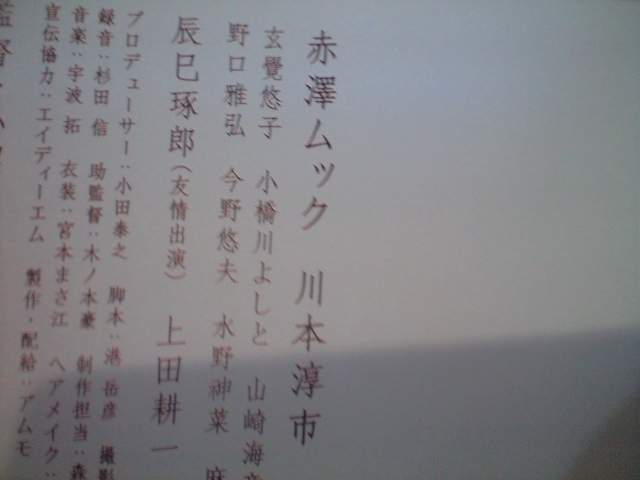 赤澤ムック 川本淳市
玄覺悠子 小橋川よしと 山崎海童
野口雅弘 今野悠夫 水野神菜 麻
辰巳琢郎(友情出演) 上田耕一
プロデューサー:小田泰之 脚本:港岳彦 撮影
録音:杉田信 助監督:木ノ本豪 制作担当:森
音楽:宇波拓 衣装:宮本まさ江 ヘアメイク:
宣伝協力:エイディーエム 製作・配給:アムモ
監督: